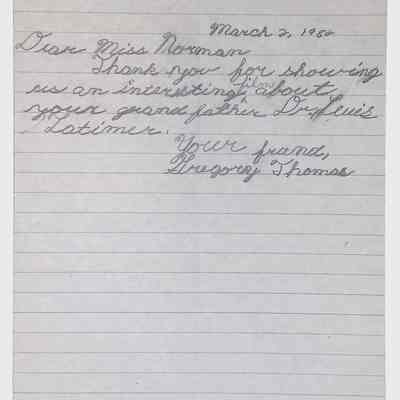 March 2, 19
Dear Miss Norman
Thank you for showing
us an interesting about
your grand father Dr. Lewis
Latimer.
Your friend,
Gregory Thomas